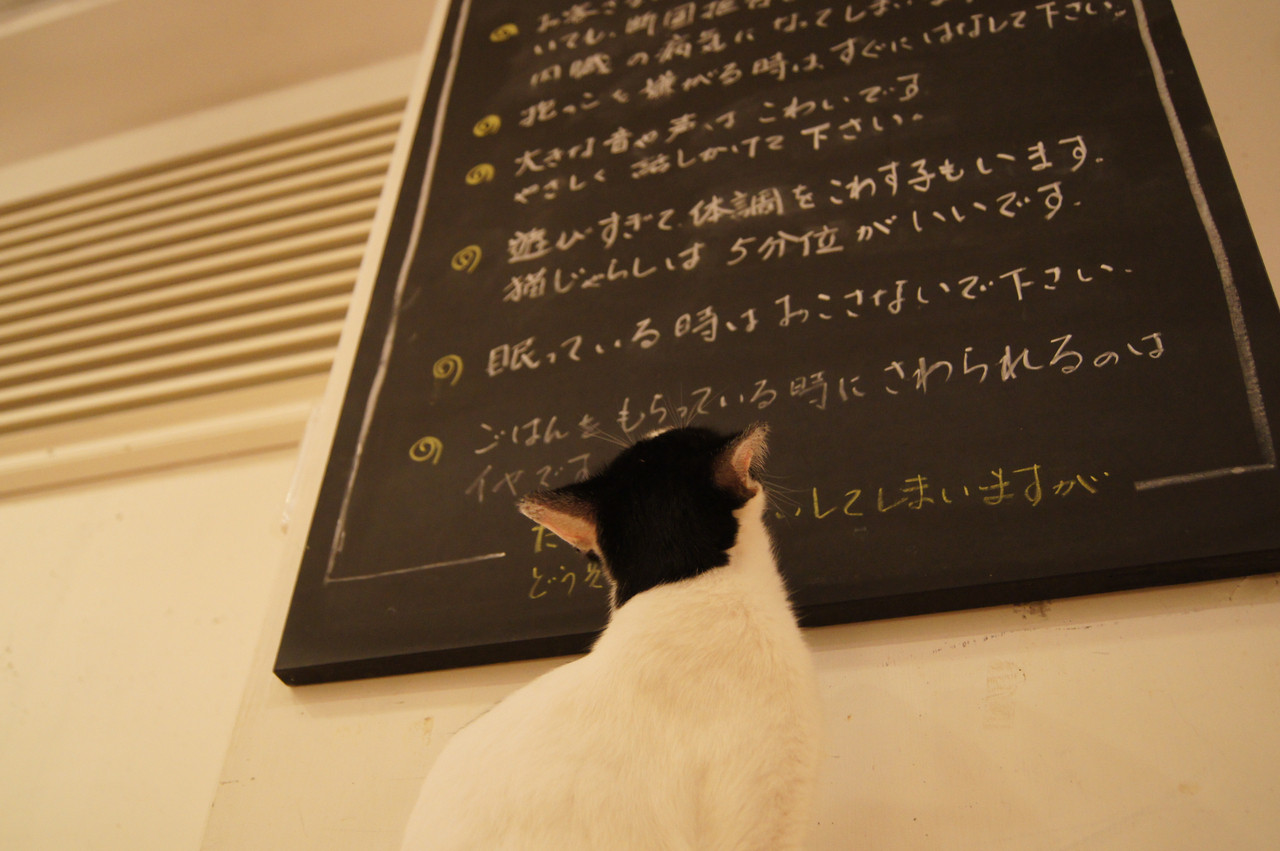 お客さま
いても、断固拒否 になってしまい
内臓の病気になってしまいます
抱っこを嫌がる時は、すぐにはなして下さい
大きな音や声はこわいです
やさしく話しかけて下さい。
遊びすぎて、体調をこわす子もいます。
猫じゃらしは5分位がいいです。
眠っている時はおこさないで下さい。
ごはんをもらっている時にさわられるのは
イヤです
た いしてしまいますが
どうぞ